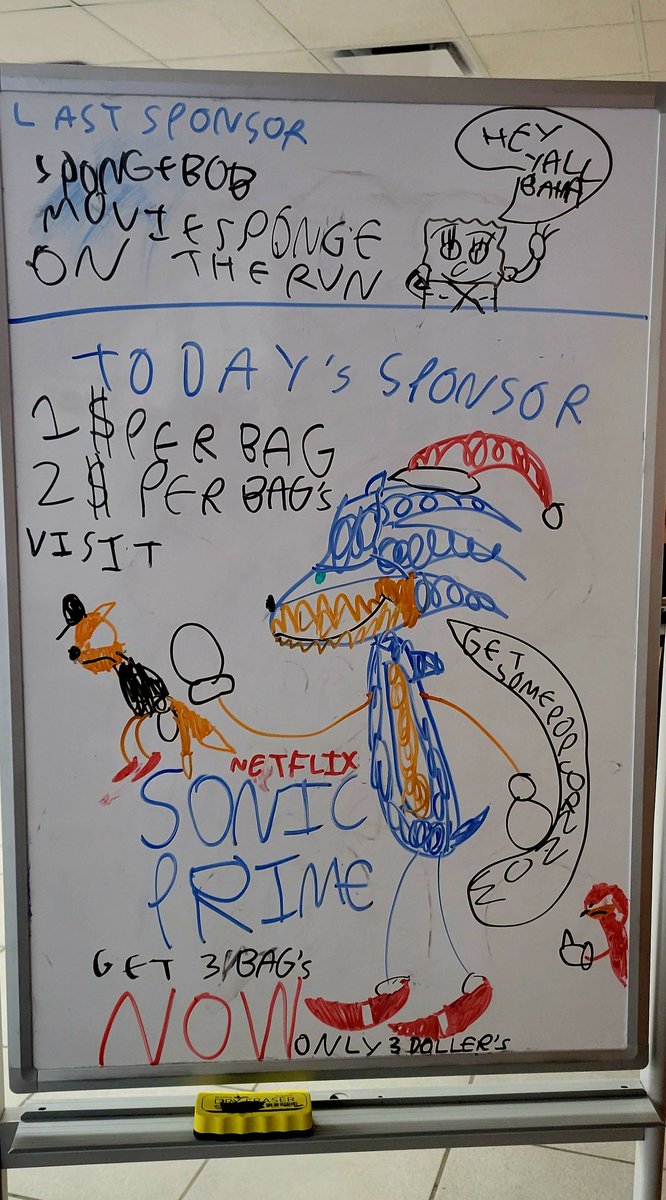 LAST SPONSOR
SPONGEBOB
MOVIE SPONGE
ON THE RUN
HEY
YALL
BAHA
TODAY's SPONSOR
1$ PER BAG
2$ PER BAG's
VISIT
GET SOME POPCORN NOW
NETFLIX
SONIC
PRIME
GET 3 BAG's
NOW
ONLY 3 DOLLER's